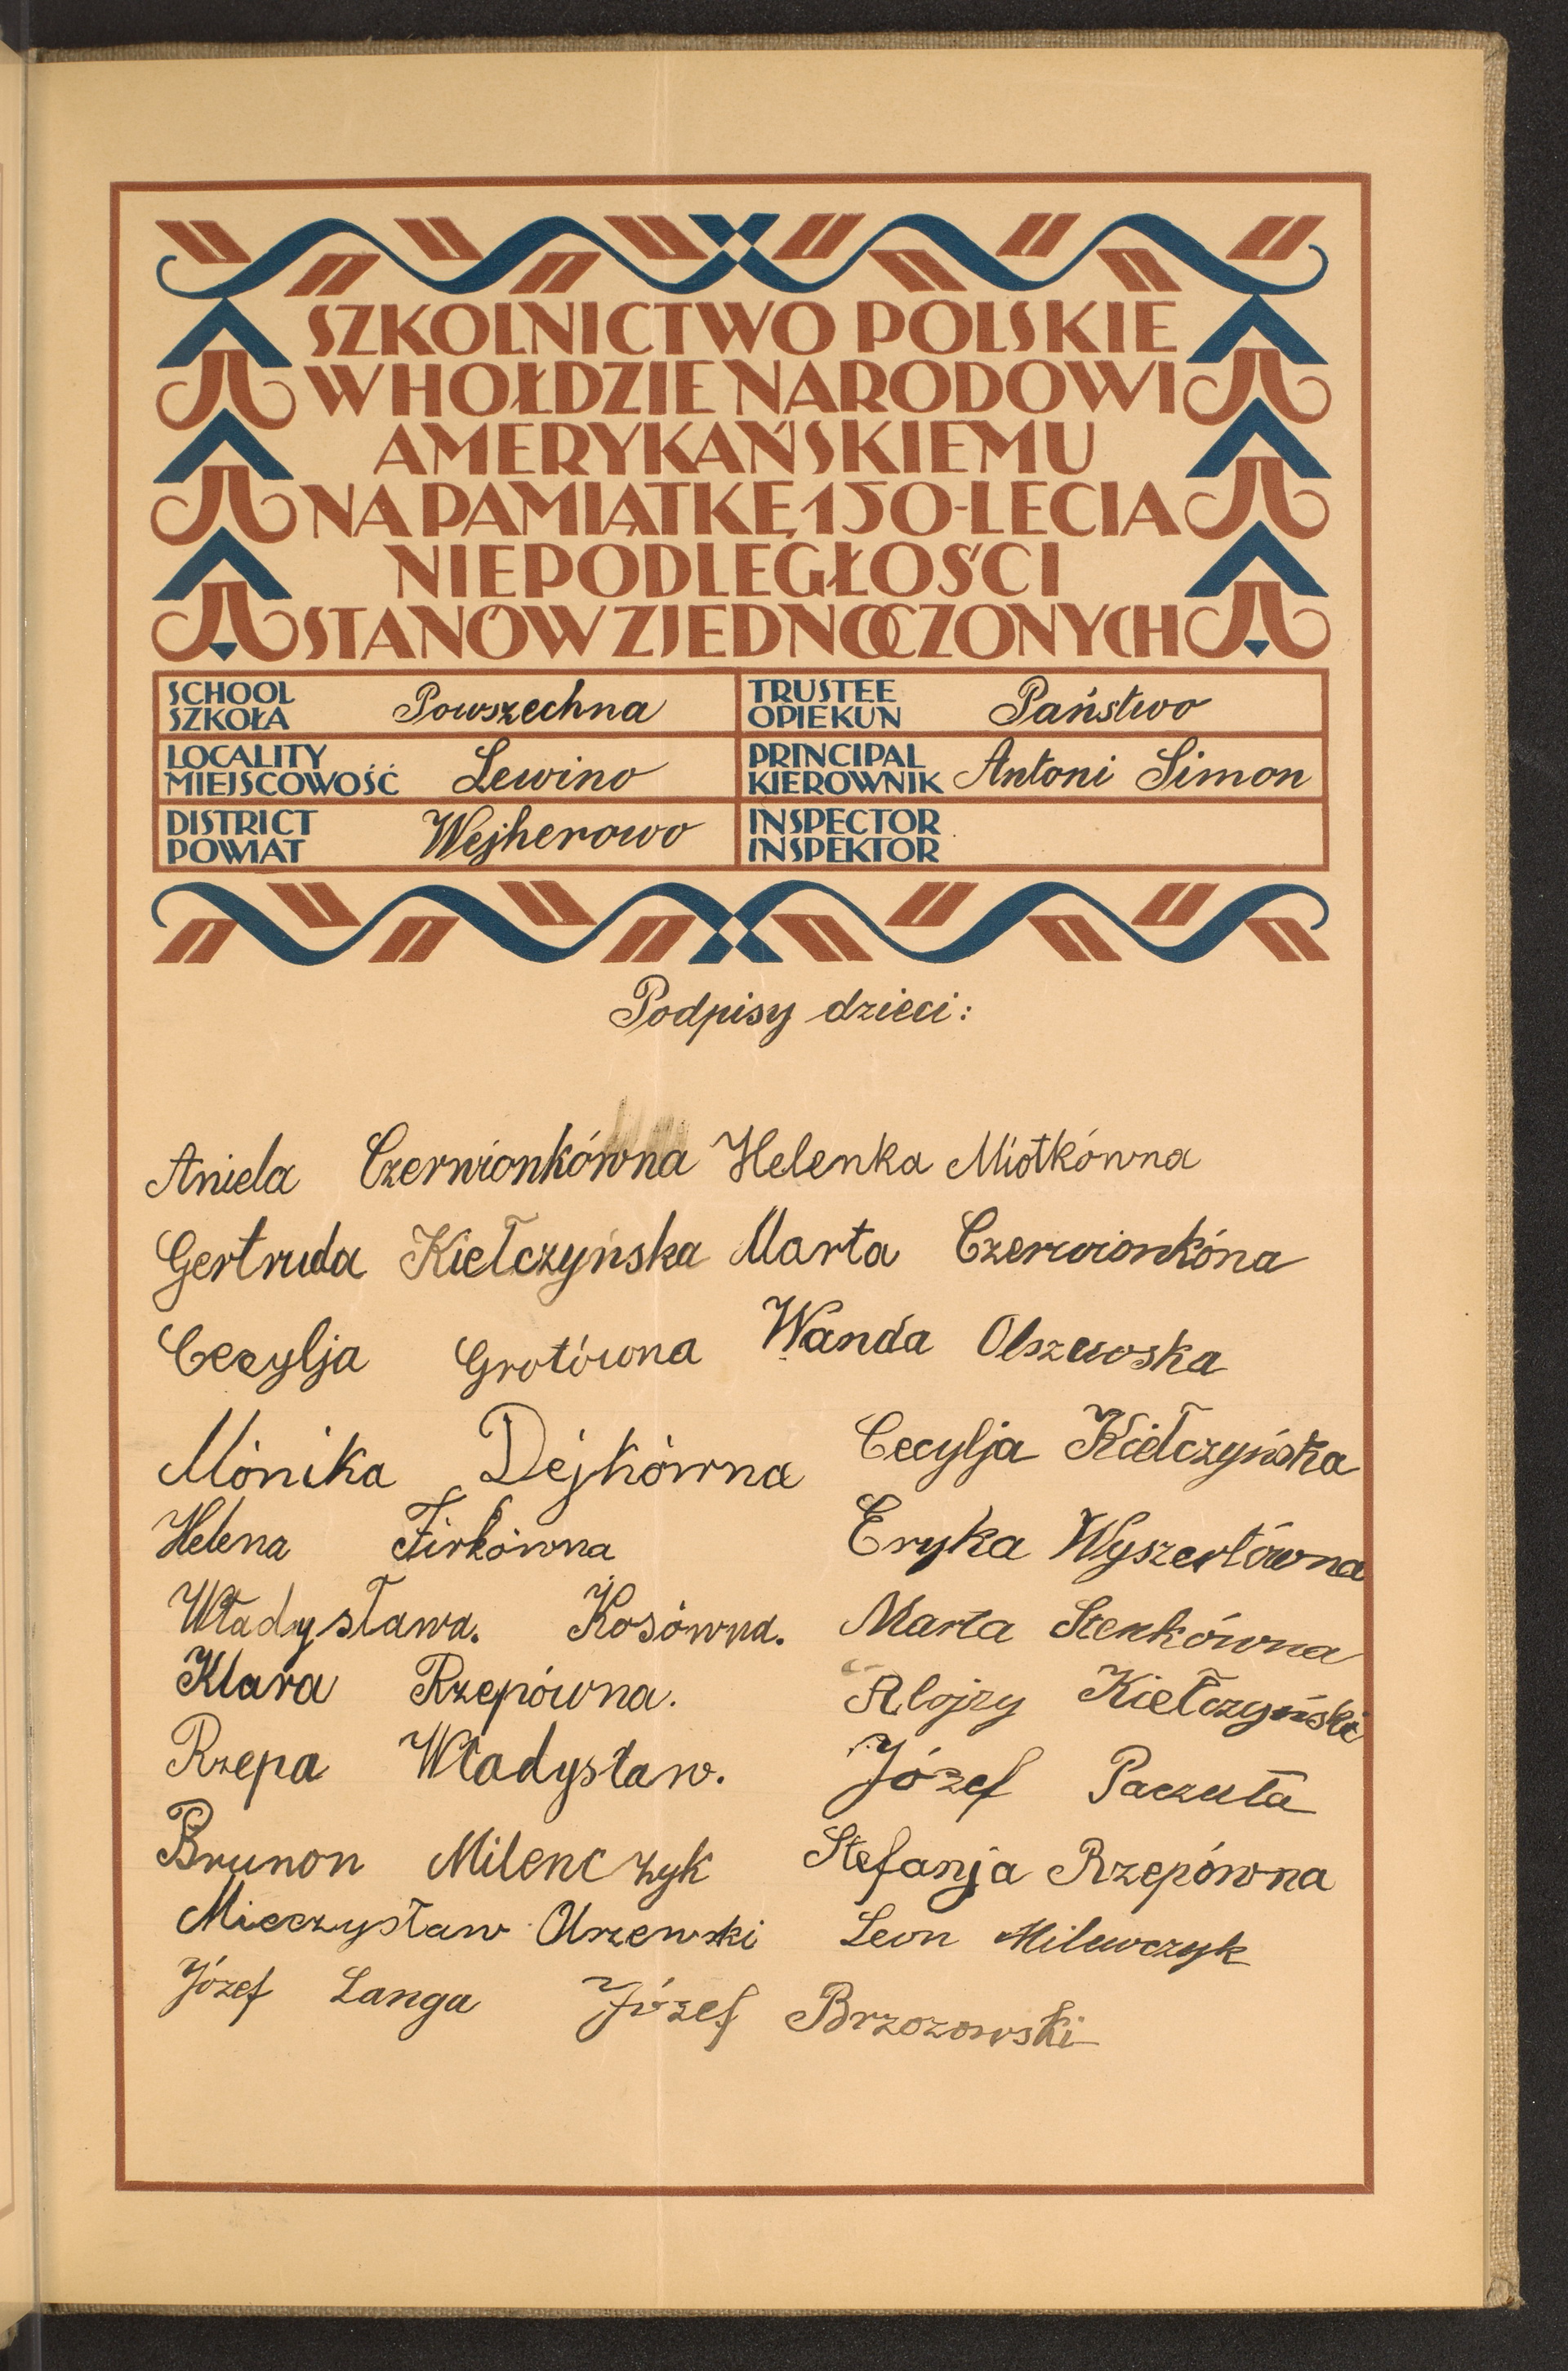 SZKOLNICTWO POLSKIE
W HOŁDZIE NARODOWI
AMERYKAŃSKIEMU
NA PAMIĄTKĘ 150-LECIA
NIEPODLEGŁOŚCI
STANÓW ZJEDNOCZONYCH
SCHOOL
SZKOŁA Powszechna
TRUSTEE
OPIEKUN Państwo
LOCALITY
MIEJSCOWOŚĆ Lewino
PRINCIPAL
KIEROWNIK Antoni Simon
DISTRICT
POWIAT Wejherowo
INSPECTOR
INSPEKTOR
Podpisy dzieci:
Aniela Czerwionkówna Helenka Miotkówna
Gertruda Kiełczyńska Marta Czerwionkóna
Cecylja Grotówna Wanda Olszewska
Mónika Dejkówna Cecylja Kiełczyńska
Helena Firkówna Eryka Wyszertówna
Władysława. Kosówna. Marta Stenkówna
Klara Rzepówna. Alojzy Kiełczyński
Rzepa Władysław. Józef Paczuła
Brunon Milenczyk Stefanja Rzepówna
Mieczysław Olszewski Leon Milewczyk
Józef Langa Józef Brzozowski